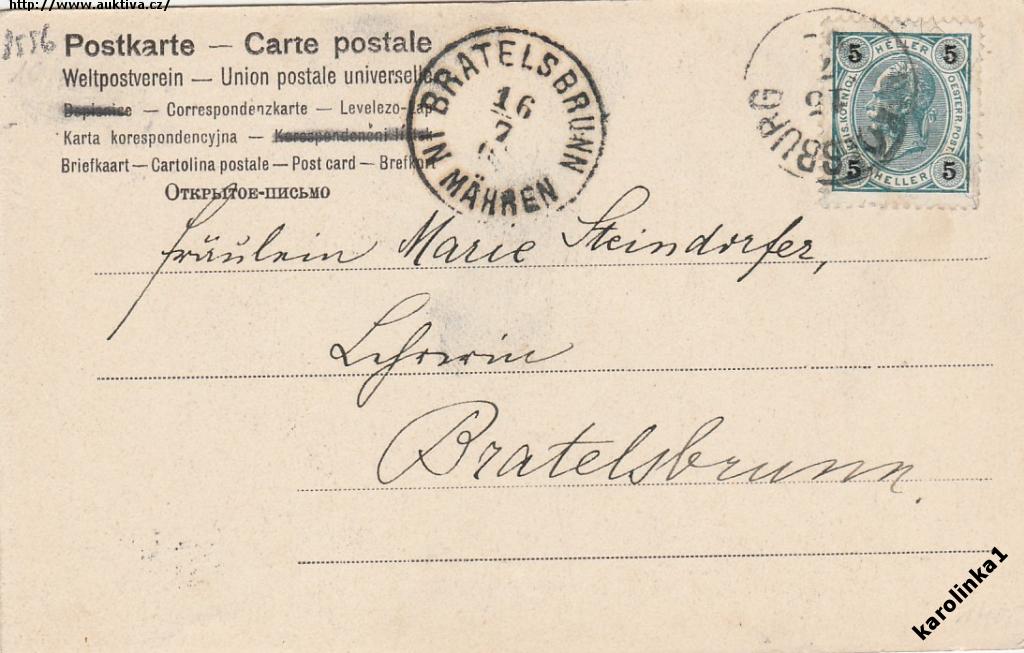 http://www.auktiva.cz/
3556
Postkarte — Carte postale
Weltpostverein — Union postale universelle
Dopisnice — Correspondenzkarte — Levelezo-Lap
Karta korespondencyjna — Korespondenční lístek
Briefkaart — Cartolina postale — Post card — Brefkort
Открытое-письмо
BRATELSBRUNN IN MÄHREN
16
7
SBURG
15
5 HELLER 5
KAIS. KOENIGL. OESTERR. POST.
5 HELLER 5
Fräulein Marie Steindorfer,
Lehrerin
Bratelsbrunn.
karolinka1